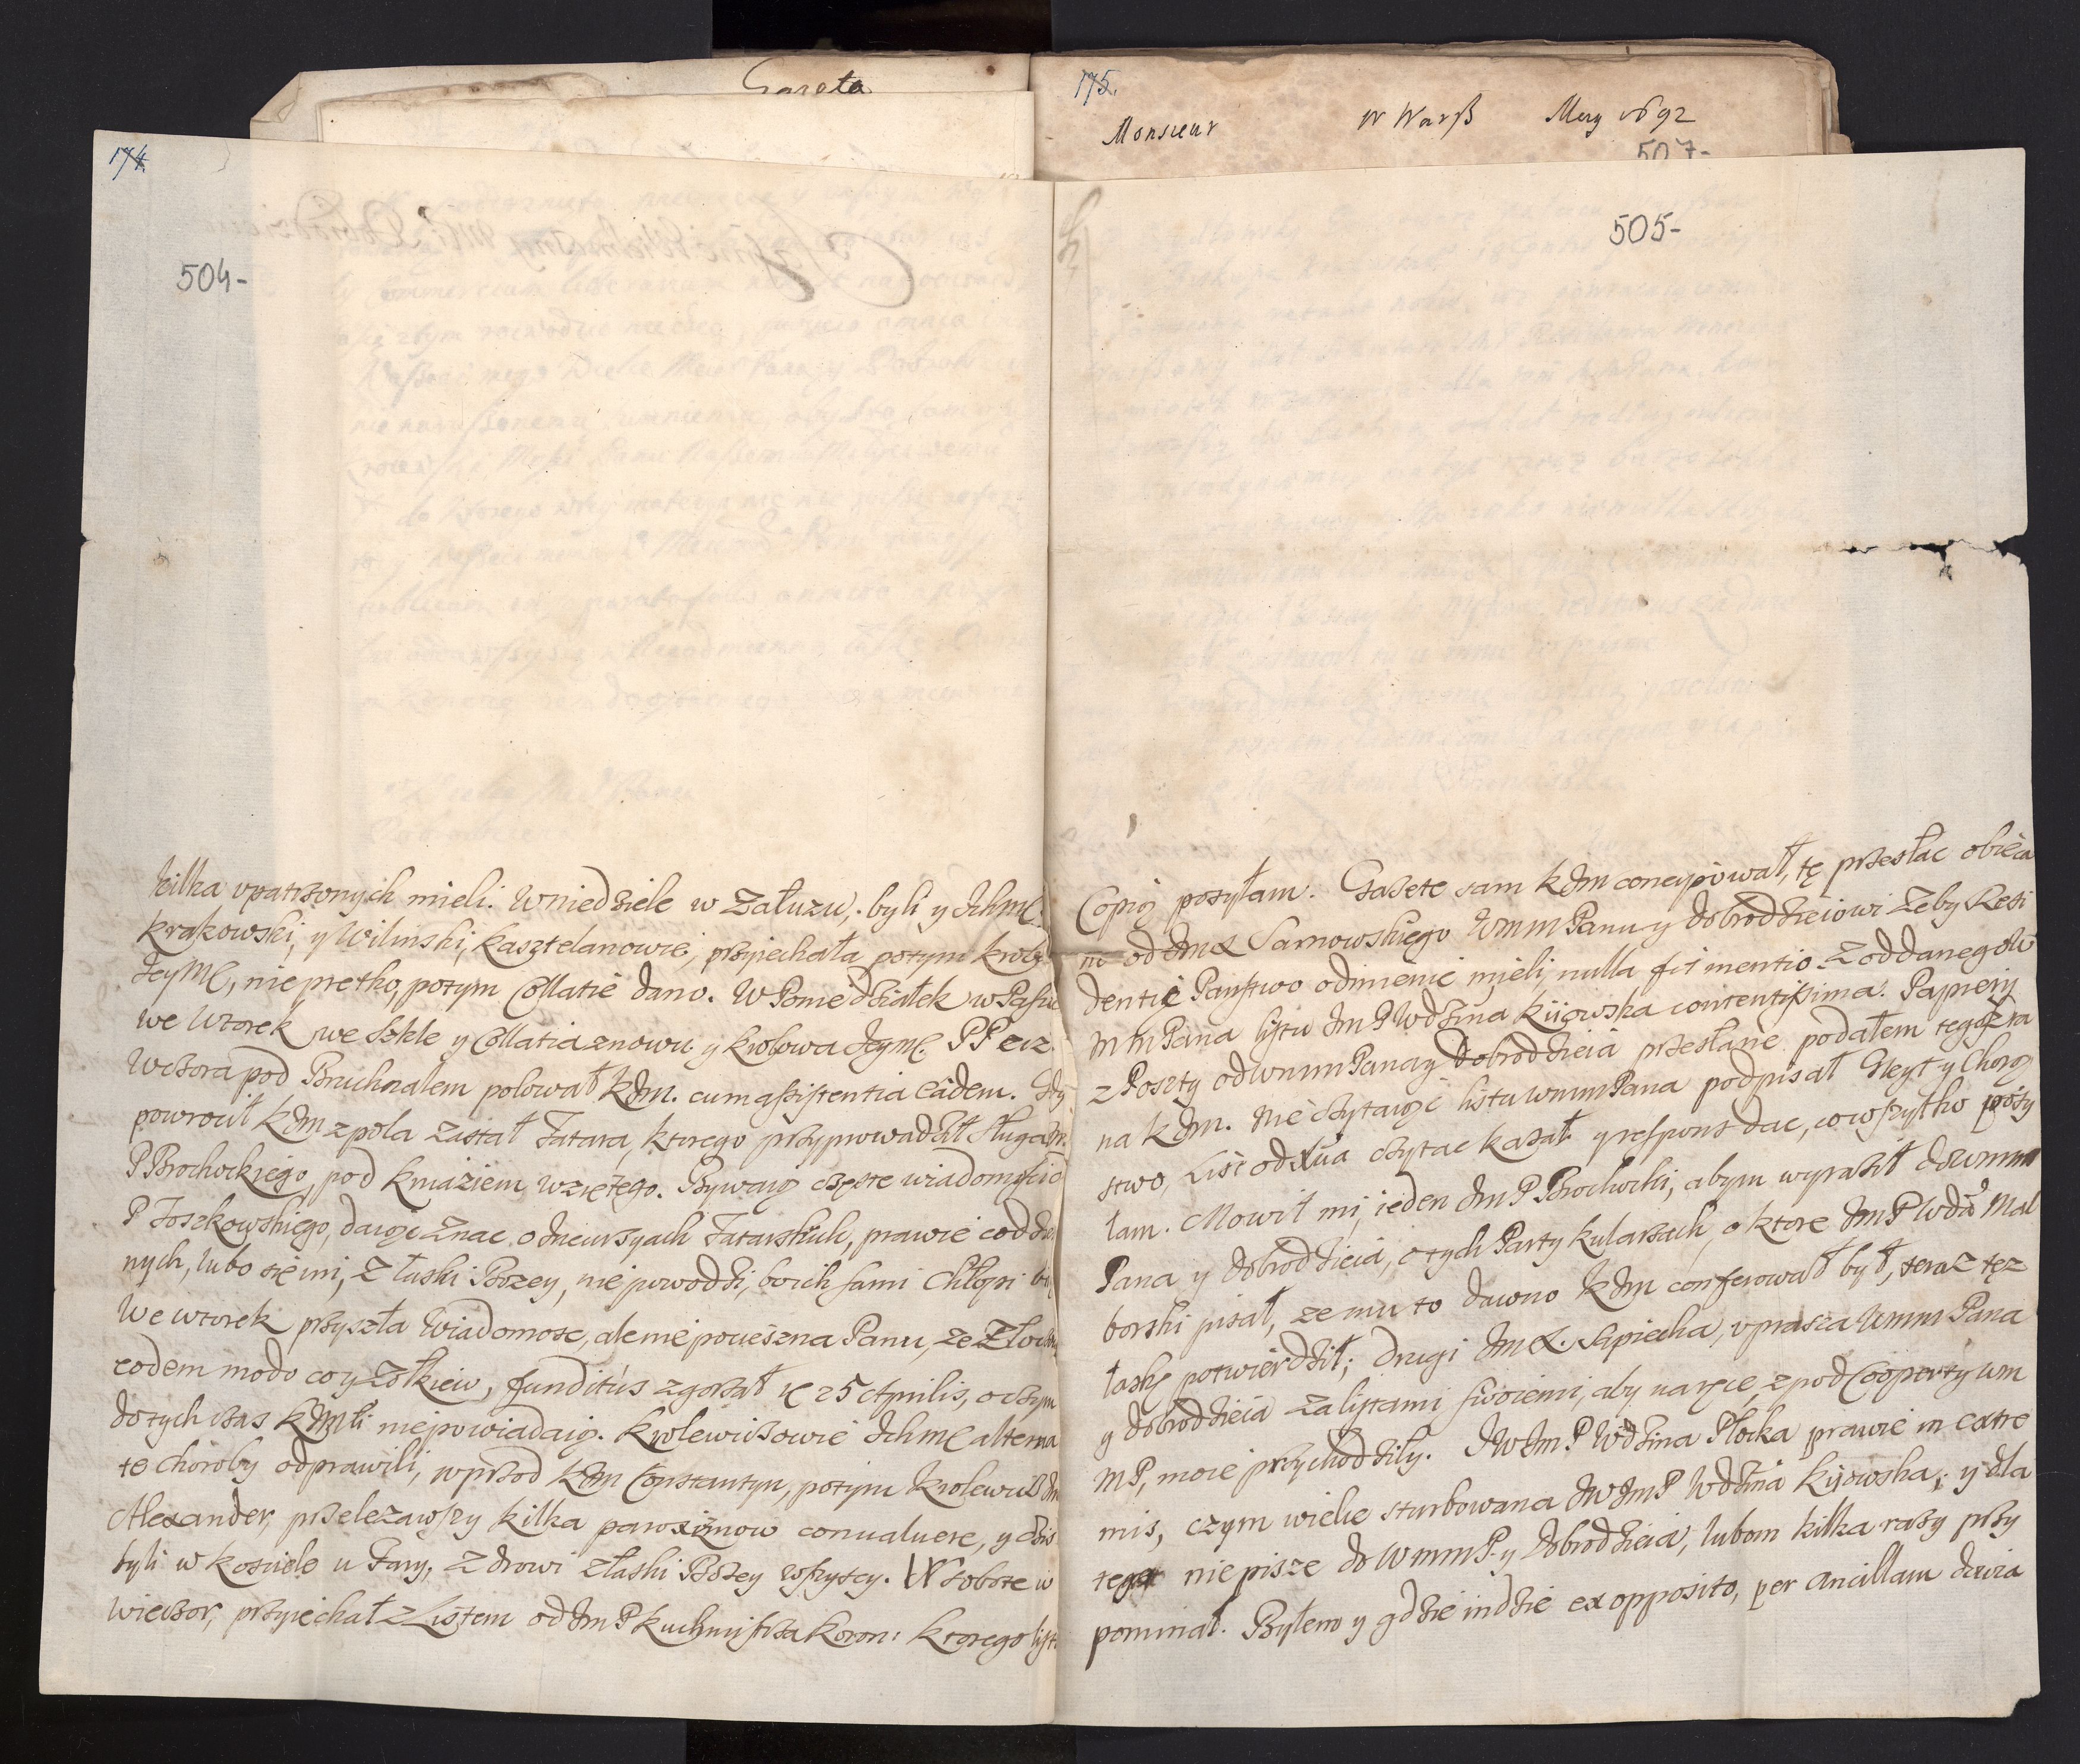 Gazeta
175.
Monsieur W Warß May 1692
507-
174
504-
505-
kilka upatrzonych mieli. W niedziele w Załuzu, byli y Ichmć
Krakowski, y Wilinski, Kasztelanowie, przyiechała potym Krolo
Jeymć, nie prętko, potym Collatię dano. W Poniedziałek w Pasie
we Wtorek we Szkle y Collatia znowu y Krolowa Jeymć.
Wczora pod Bruchnalem polował KJm. cum assistentia eadem. Gdy
powrocił KJm z pola zastał Tatara, ktorego przyprowadził Sługa Jm
P Brochockiego, pod Kniażiem wziętego. Bywaią częste wiadomosci o
P Toszkowskiego, daiąc znac o Incursyach Tatarskich, prawie codzie
nych, lubo się im, z łaski Bozey, nie powodzi, bo ich sami Chłopi bi
We wtorek przyszła Wiadomosc, ale nie pocieszna Panu, ze Złocz
eodem modo co y Zołkiew, funditus zgorzał 25 Aprilis, o czym
do tych czas KJMci nie powiadaią. Krolewiczowie Ichmć alterna
te choroby odprawili, wprzod KJm Constantyn, potym Krolewicz Jm
Alexander, przelezawszy kilka paroxizmow convaluere, y dzis
byli w kosciele u Fary, zdrowi z łaski Bozey wszyscy. W sobote w
wieczor, przyiechał z Listem od Jm P Kuchmistrza Koron: ktorego listu
Copią posyłam. Gazete sam KJm concypował, tę przesłac obieca
m od Jm X Sarnowskiego Wmm Panu y dobrodzieiowi zeby Resi
dentię Panstwo odmienic mieli, nulla fit mentio. Z oddanego W
m m Pana listu Jm P Wdzina Kiiowska contentissima. Papiery
z Poszty od Wmm Pana y Dobrodzieia przesłane podałem tegoz ra
na KJm. Nie czytaiąc listu Wmm Pana podpisał Gleyt y Chorą
stwo, List od czytac kazał y respons dac, co wszytko posy
łam. Mowił mi, ieden Jm P Brochocki, abym wyraził do Wmm
Pana y dobrodzieia, o tych Partykularzach, o ktore Jm P Wda Mal
borski pisał, ze mu to dawno KJm conferował był, teraz tęz
łaskę potwierdził; drugi Jm X. Sapiecha, uprasza Wmm Pana
y dobrodzieia za listami swoiemi, aby na ręce, z pod Cooperty Wm
m P, moie przychodziły. JWJm P Wdzina Płocka prawie in extre
mis, czym wielce sturbowana JWJmP Wdzina Kijowska, y dla
tego nie pisze do Wmm P. y Dobrodzieia, lubom kilka razy przy
pominał. Byłem y gdzie indzie ex opposito, per Ancillam